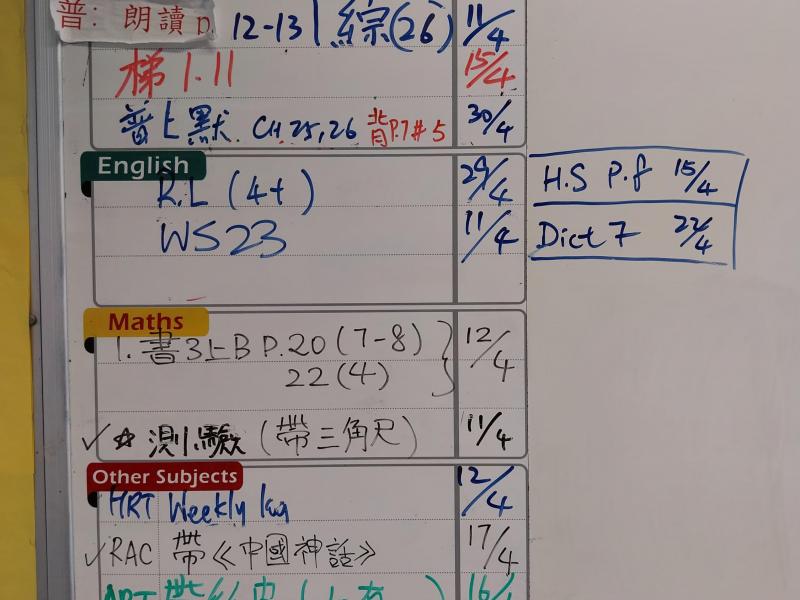 普: 朗讀 p. 12-13 | 綜(26) 11/4
梯 1.11 15/4
普上默 CH 25,26 背P.7#5 30/4
English
R.L (4+) 29/4
WS23 11/4
H.S P.8 15/4
Dict 7 22/4
Maths
1. 書3上B P.20 (7-8) } 12/4
22 (4)
✓☆ 測驗 (帶三角尺) 11/4
Other Subjects
HRT Weekly 12/4
✓RAC 帶《中國神話》 17/4
ART 帶 16/